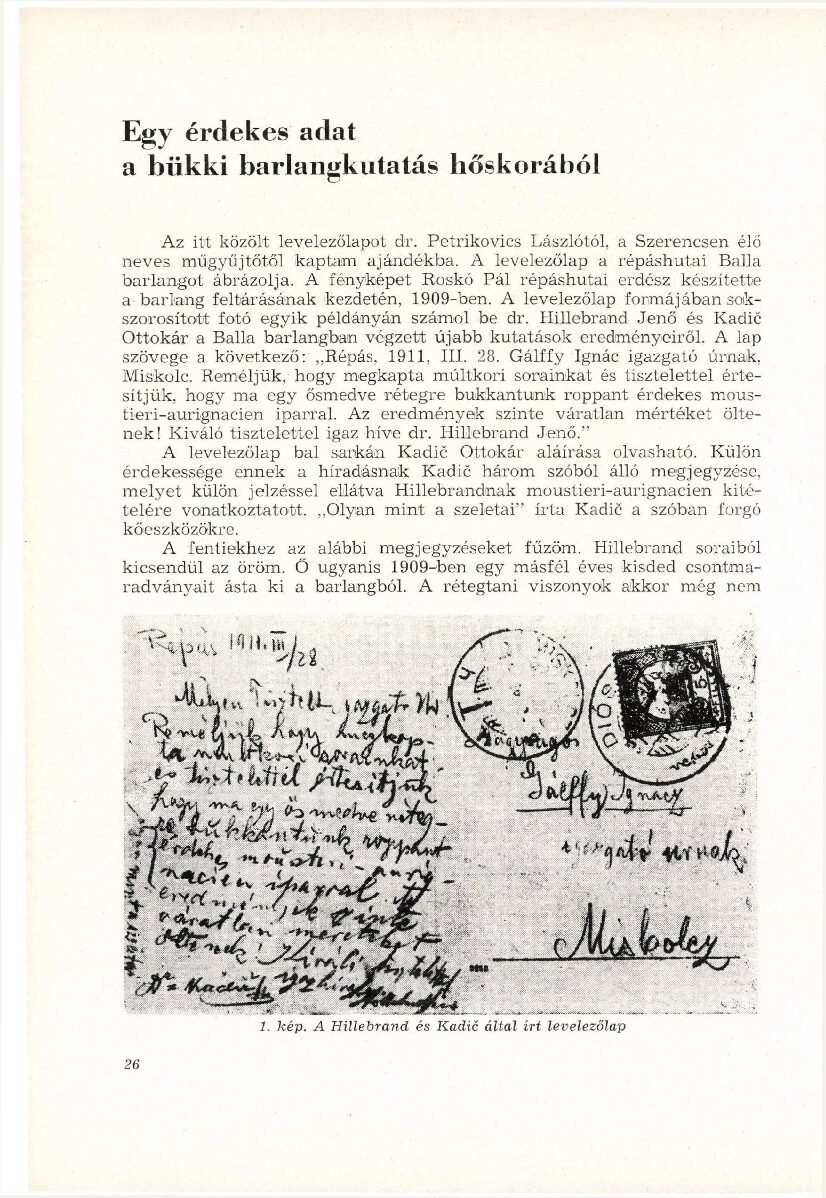 Egy érdekes adat
a bükki barlangkutatás hőskorából
Az itt közölt levelezőlapot dr. Petrikovics Lászlótól, a Szerencsen élő
neves műgyűjtőtől kaptam ajándékba. A levelezőlap a répáshutai Balla
barlangot ábrázolja. A fényképet Roskó Pál répáshutai erdész készítette
a barlang feltárásának kezdetén, 1909-ben. A levelezőlap formájában sok-
szorosított fotó egyik példányán számol be dr. Hillebrand Jenő és Kadič
Ottokár a Balla barlangban végzett újabb kutatások eredményeiről. A lap
szövege a következő: „Répás, 1911, III. 28. Gálffy Ignác igazgató úrnak,
Miskolc. Reméljük, hogy megkapta múltkori sorainkat és tisztelettel érte-
sítjük, hogy ma egy ősmedve rétegre bukkantunk roppant érdekes mous-
tieri-aurignacien iparral. Az eredmények szinte váratlan mértéket ölte-
nek! Kiváló tisztelettel igaz híve dr. Hillebrand Jenő.”
A levelezőlap bal sarkán Kadič Ottokár aláírása olvasható. Külön
érdekessége ennek a híradásnak Kadič három szóból álló megjegyzése,
melyet külön jelzéssel ellátva Hillebrandnak moustieri-aurignacien kité-
telére vonatkoztatott. „Olyan mint a szeletai” írta Kadič a szóban forgó
kőeszközökre.
A fentiekhez az alábbi megjegyzéseket fűzöm. Hillebrand soraiból
kicsendül az öröm. Ő ugyanis 1909-ben egy másfél éves kisded csontma-
radványait ásta ki a barlangból. A rétegtani viszonyok akkor még nem
Répás 1911. III/28
Mélyen Tisztelt igazgató Úr
Reméljük hogy megkap-
ta múltkori sorainkat
és tisztelettel értesítjük
hogy ma egy ősmedve réteg-
re bukkantunk roppant
érdekes mousteri-aurig-
nacien iparral. Az
eredmények szinte
váratlan mértéket
öltenek! Kiváló tisztelettel
igaz híve
Dr Kadić
olyan mint a szeletai
DIÓS
Nagyságos
Gálffy Ignacz
igazgató urnak
Miskolcz
1. kép. A Hillebrand és Kadič által írt levelezőlap
26